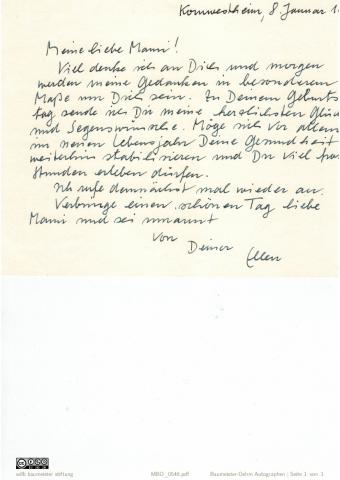 Kornwestheim, 8. Januar 1
Meine liebe Mami!
Viel denke ich an Dich und morgen
werden meine Gedanken in besonderem
Maße um Dich sein. Zu Deinem Geburts
tag sende ich Dir meine herzlichsten Glüc
und Segenswünsche. Möge sich vor allem
im neuen Lebensjahr Deine Gesundheit
weiterhin stabilisieren und Du viel
Stunden erleben dürfen.
Ich rufe demnächst mal wieder an.
Verbringe einen schönen Tag liebe
Mami und sei umarmt
von
Deiner
Ellen
willi baumeister stiftung
MBD_0546.pdf
Baumeister-Dehm Autographen | Seite 1 von 1